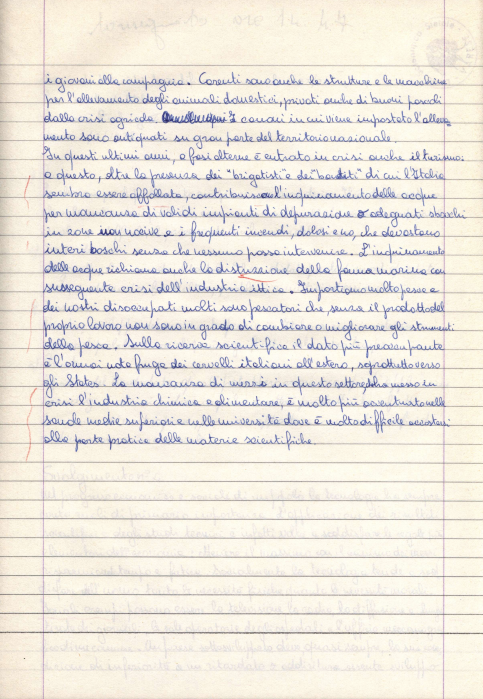 i giovani alla campagna. Carenti sono anche le strutture e le macchine
per l'allevamento degli animali domestici, privati anche di buoni pascoli
dalla crisi agricola. I canoni in cui viene impostato l'alleva-
mento sono antiquati su gran parte del territorio nazionale.
In questi ultimi anni, a fasi alterne è entrato in crisi anche il turismo:
a questo, oltre la presenza dei "brigatisti" e dei "banditi" di cui l'Italia
sembra essere affollata, contribuiscono l'inquinamento delle acque
per mancanza di validi impianti di depurazione o adeguati sbocchi
in zone non nocive e i frequenti incendi, dolosi e no, che devastano
interi boschi senza che nessuno possa intervenire. L'inquinamento
delle acque richiama anche la distruzione della fauna marina con
susseguente crisi dell'industria ittica. Importiamo molto pesce e
dei nostri disoccupati molti sono pescatori che, senza il prodotto del
proprio lavoro non sono in grado di cambiare o migliorare gli strumenti
della pesca. Sulla ricerca scientifica il dato più preoccupante
è l'ormai nota fuga dei cervelli italiani all'estero, soprattutto verso
gli States. La mancanza di mezzi in questo settore, che ha messo in
crisi l'industria chimica e alimentare, è molto più accentuata nelle
scuole medie superiori e nelle università dove è molto difficile accostarsi
alla parte pratica delle materie scientifiche.